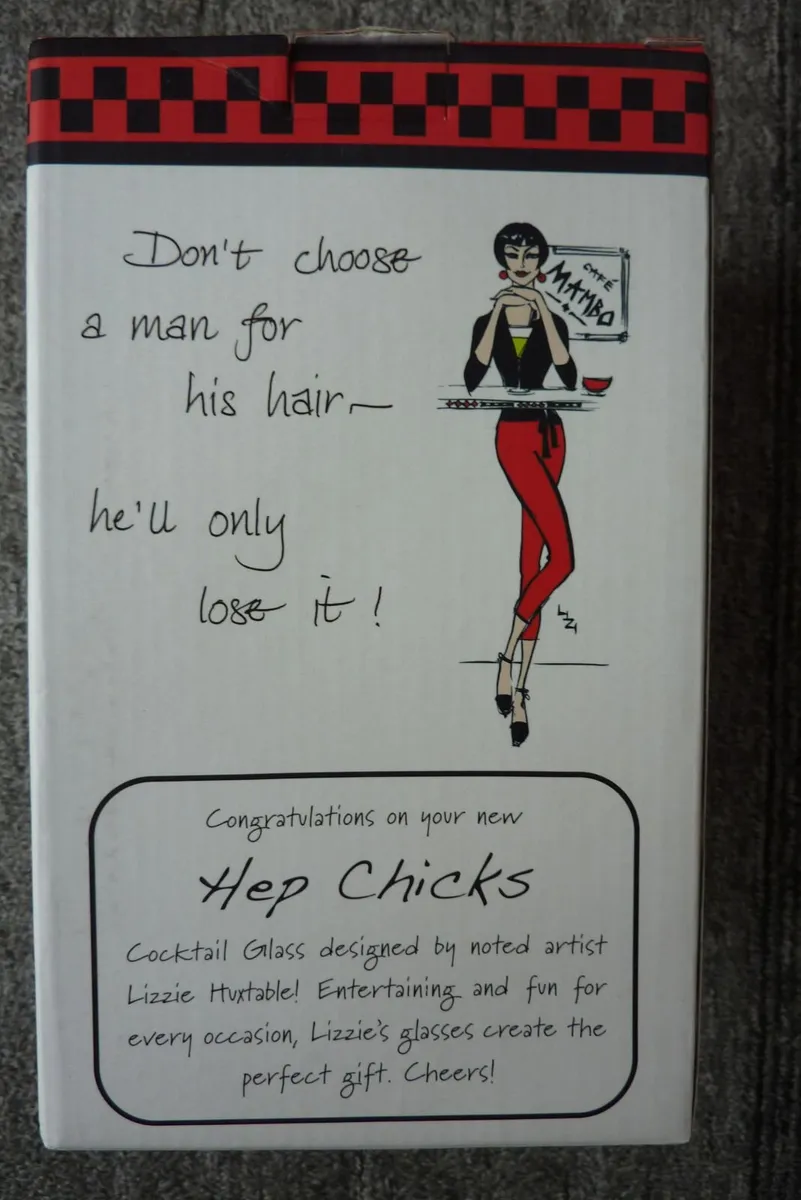 Don't choose
a man for
his hair—
he'll only
lose it!
CAFÉ
MAMBO
LIZI
Congratulations on your new
Hep Chicks
Cocktail Glass designed by noted artist
Lizzie Huxtable! Entertaining and fun for
every occasion, Lizzie's glasses create the
perfect gift. Cheers!